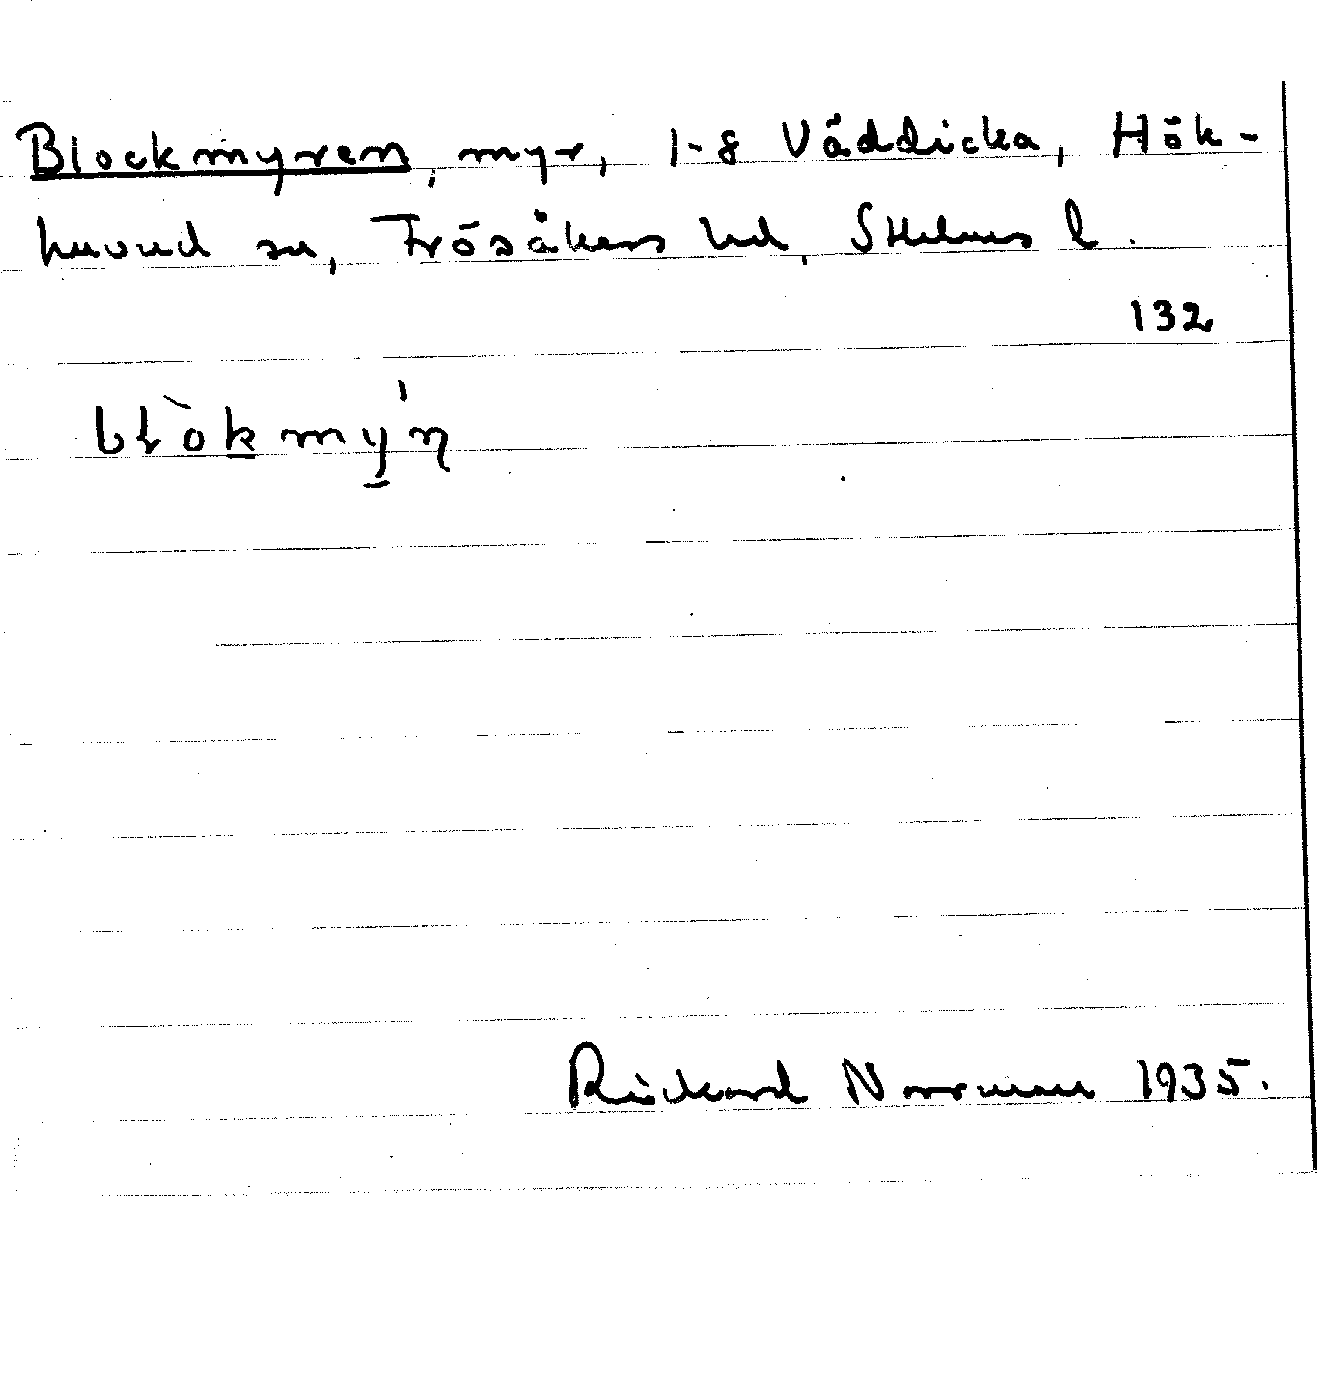 Blockmyren, myr, 1-8 Väddicka, Hök-
huvud sn, Frösåkers hd, Sthlms l.
132
Rickard Norrman 1935.